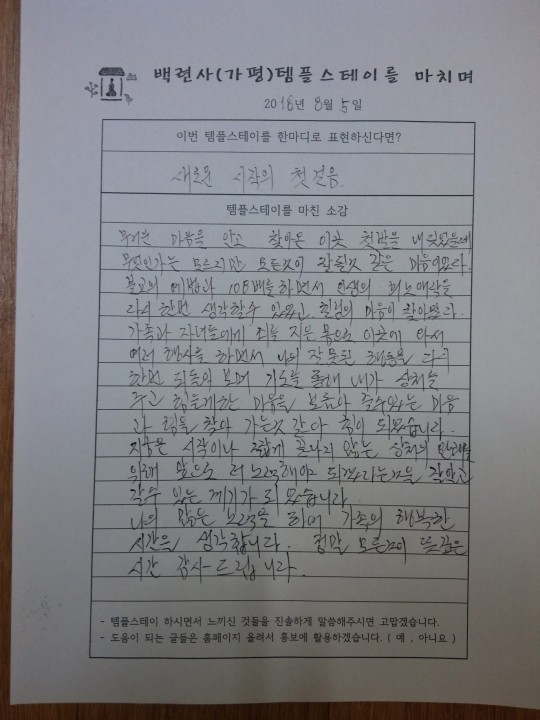 백련사(가평)템플스테이를 마치며
2018년 8월 5일
이번 템플스테이를 한마디로 표현하신다면?
새로운 시작의 첫걸음.
템플스테이를 마친 소감
무거운 마음을 안고 찾아온 이곳 첫발을 내딧었을때
무엇인가는 모르지만 모든것이 잘될것 같은 마음이였다.
불교의 예법과 108배를 하면서 인생의 희노애락을
다시 한번 생각할수 있었고 초심의 마음이
가족과 자녀들에게 죄를 지은 몸으로 이곳에 와서
여러 행사를 하면서 나의 잘못된 행동을 다시
한번 되돌아 보며 기도를 통해 내가 상처를
주고 힘들게한 마음을 보듬아 줄수있는 마음
과 힘을 찾아 가는것 같아 힘이 되었습니다.
지금은 시작이나 그렇게 끝나지 않는 상처의
위해 앞으로 더 노력해야 되겠다라는것을 깨닫고
갈수 있는 계기가 되었습니다.
나의 많은 노력을 하여 가족의 행복한
시간을 생각합니다. 정말 모든것이 뜻깊은
시간 감사드립니다.
- 템플스테이 하시면서 느끼신 것들을 진솔하게 말씀해주시면 고맙겠습니다.
- 도움이 되는 글들은 홈페이지 올려서 홍보에 활용하겠습니다. ( 예 , 아니요 )